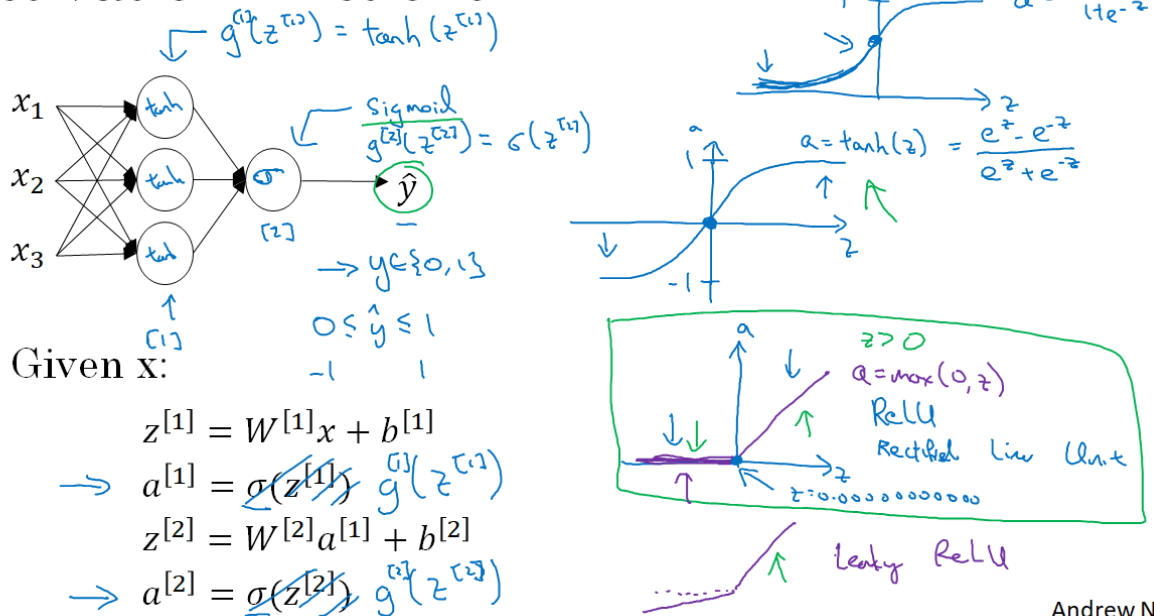 g^[1](z^[1]) = tanh(z^[1])
x₁
x₂
x₃
tanh
tanh
tanh
σ
[1]
[2]
Sigmoid
g^[2](z^[2]) = σ(z^[2])
ŷ
→ y∈{0,1}
0 ≤ ŷ ≤ 1
-1 1
Given x:
z^[1] = W^[1]x + b^[1]
→ a^[1] = σ(z^[1]) g^[1](z^[1])
z^[2] = W^[2]a^[1] + b^[2]
→ a^[2] = σ(z^[2]) g^[2](z^[2])
1+e^-z
z
a
1
a = tanh(z) = (e^z - e^-z)/(e^z + e^-z)
z
-1
a
z > 0
a = max(0,z)
ReLU
Rectified Linear Unit
z
z=0.00000000000
Leaky ReLU
Andrew N